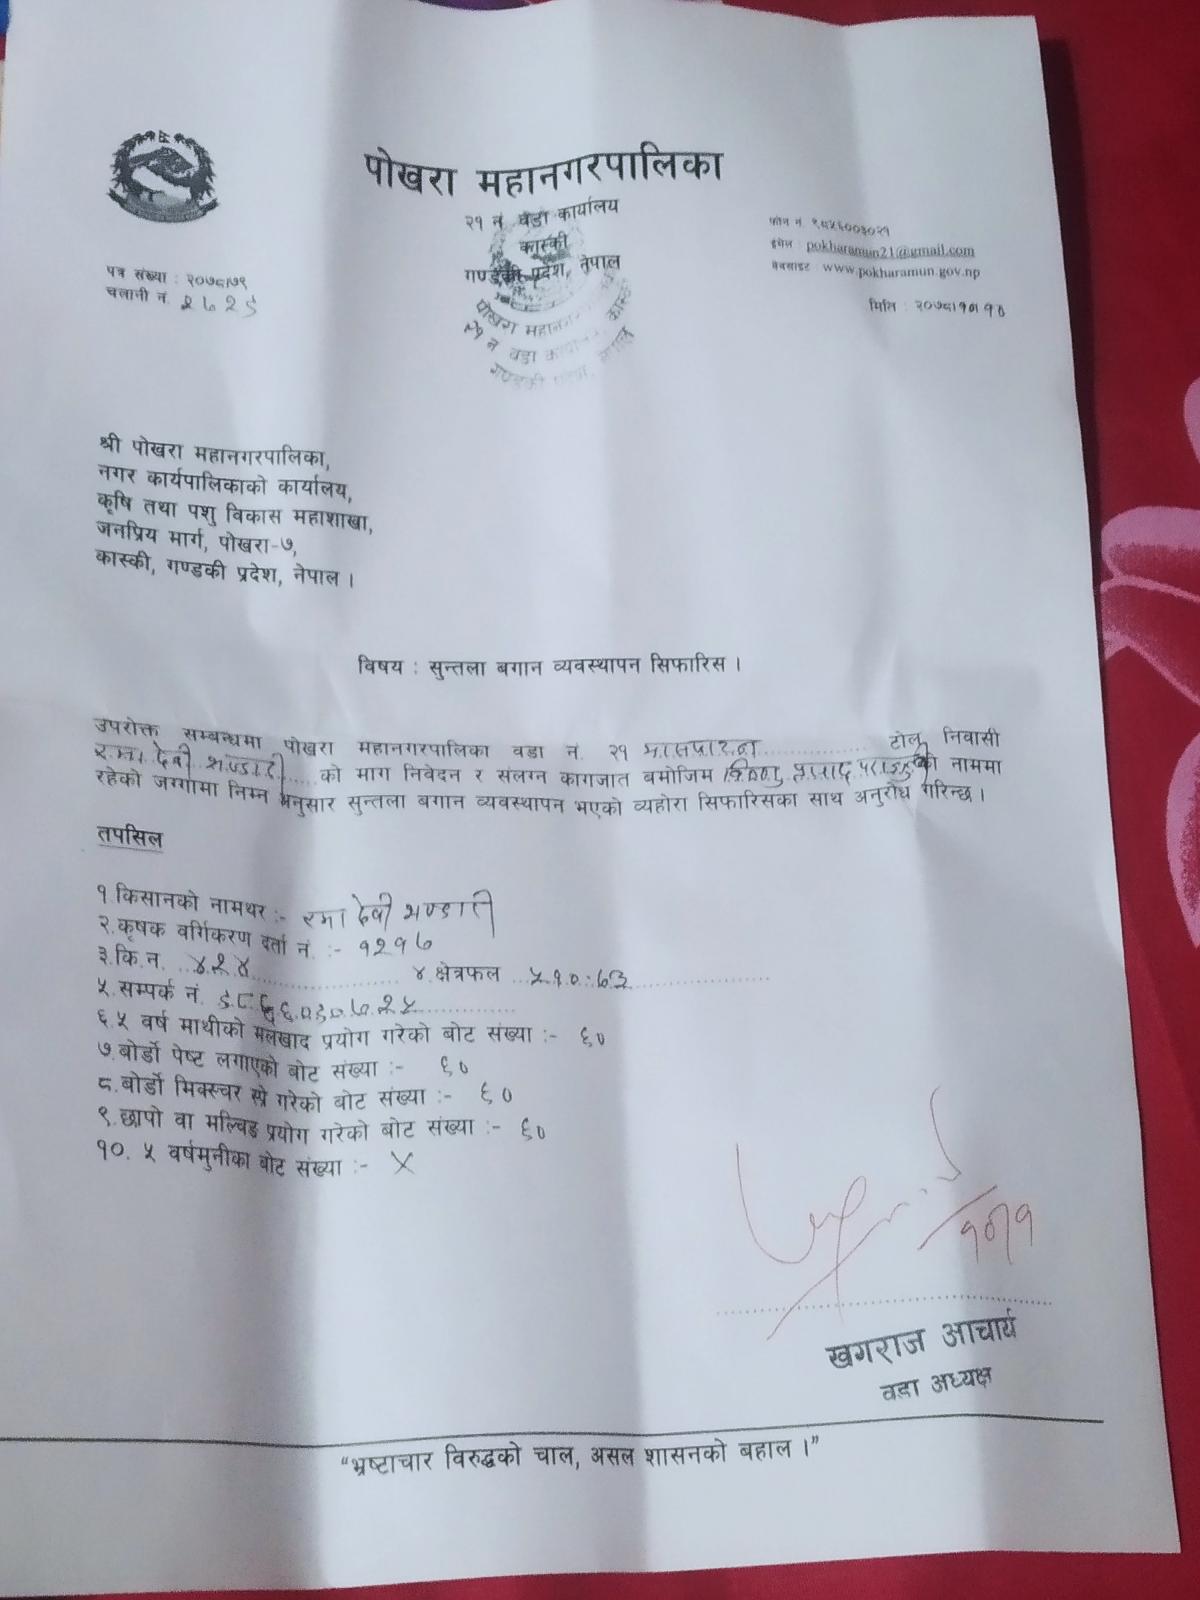 पोखरा महानगरपालिका
२१ नं वडा कार्यालय
कास्की
गण्डकी प्रदेश, नेपाल
फोन नं. ९८५६००३०२१
इमेल : pokharamun21@gmail.com
वेबसाइट : www.pokharamun.gov.np
पत्र संख्या : २०७८।७९
चलानी नं. २७२९
मिति : २०७८।१०।१०
पोखरा महानगरपालिका
२१ नं वडा कार्यालय, कास्की
गण्डकी प्रदेश, नेपाल
श्री पोखरा महानगरपालिका,
नगर कार्यपालिकाको कार्यालय,
कृषि तथा पशु विकास महाशाखा,
जनप्रिय मार्ग, पोखरा-७,
कास्की, गण्डकी प्रदेश, नेपाल ।
विषय : सुन्तला बगान व्यवस्थापन सिफारिस ।
उपरोक्त सम्बन्धमा पोखरा महानगरपालिका वडा नं. २१ टोल निवासी
रमा देवी भण्डारी को माग निवेदन र संलग्न कागजात बमोजिम प्रसाद को नाममा
रहेको जग्गामा निम्न अनुसार सुन्तला बगान व्यवस्थापन भएको व्यहोरा सिफारिसका साथ अनुरोध गरिन्छ ।
तपसिल
१.किसानको नामथर :- रमा देवी भण्डारी
२.कृषक वर्गिकरण दर्ता नं. :- १२१७
३.कि.न. ४२४ ४.क्षेत्रफल ५१०.७३
५.सम्पर्क नं. ९८६६०३०७२५
६.५ वर्ष माथीको मलखाद प्रयोग गरेको बोट संख्या :- ६०
७.बोर्डो पेष्ट लगाएको बोट संख्या :- ६०
८.बोर्डो मिक्स्चर स्प्रे गरेको बोट संख्या :- ६०
९.छापो वा मल्चिङ प्रयोग गरेको बोट संख्या :- ६०
१०. ५ वर्षमुनीका बोट संख्या :- X
१०।१
खगराज आचार्य
वडा अध्यक्ष
“भ्रष्टाचार विरुद्धको चाल, असल शासनको बहाल ।”